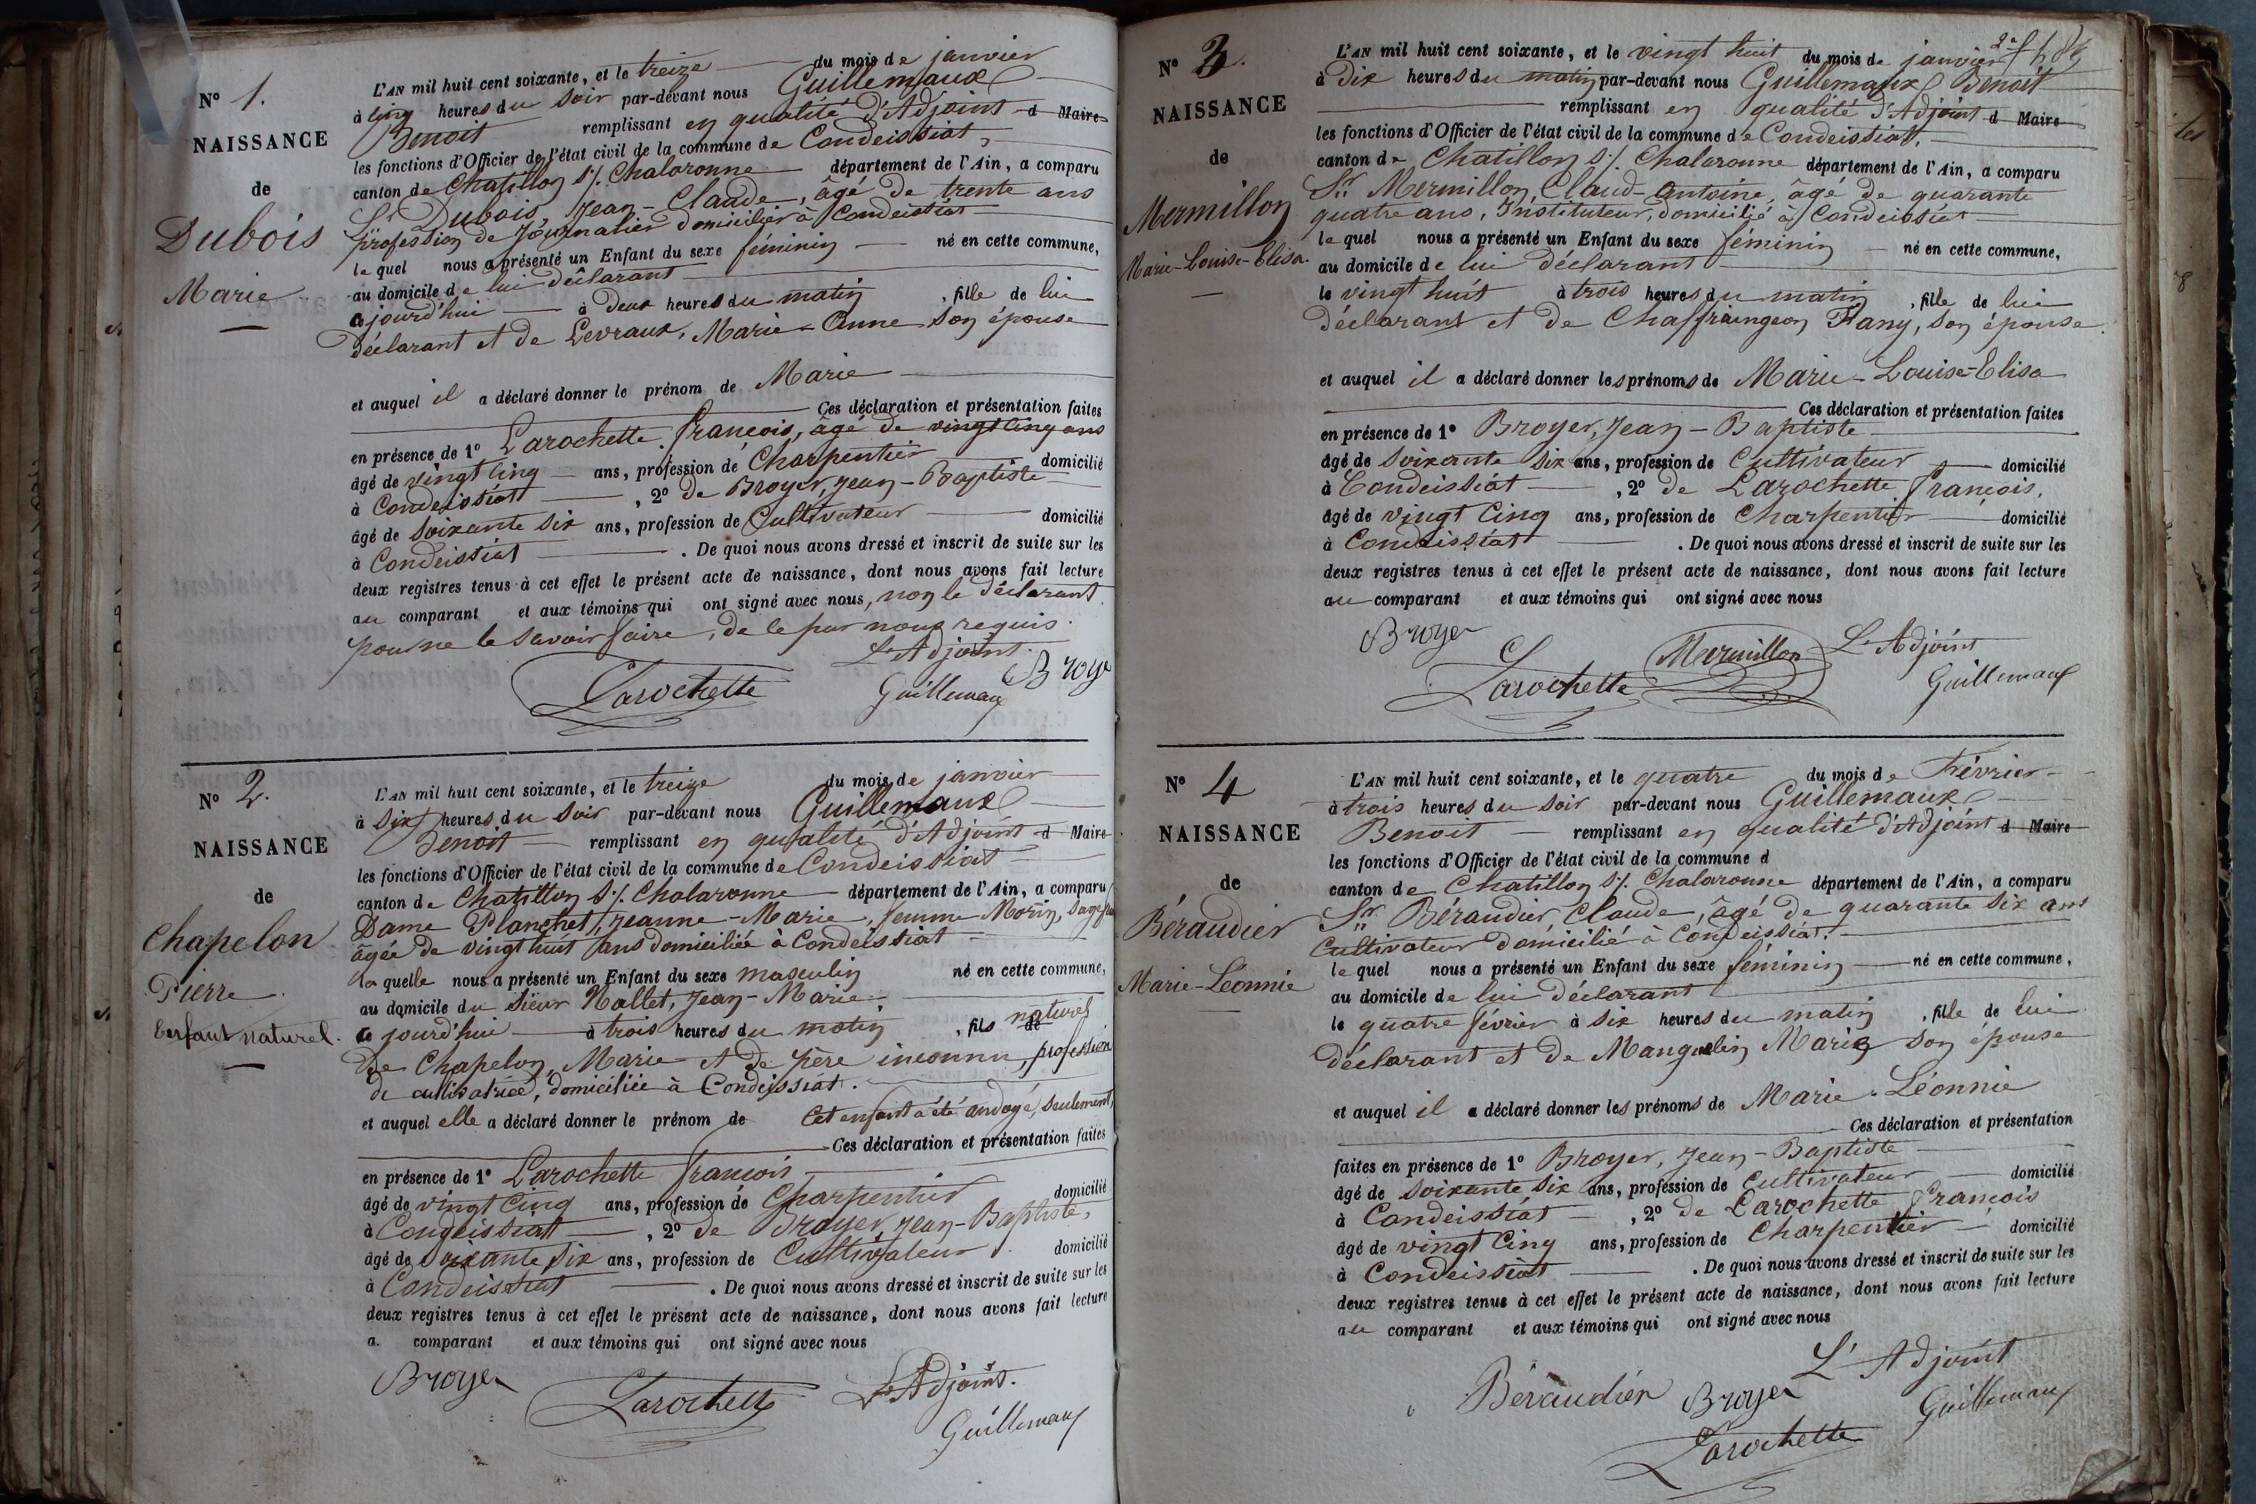 N° 1.
NAISSANCE
de
Dubois
Marie
L'AN mil huit cent soixante, et le treize du mois de janvier
à cinq heures du soir par-devant nous Guillemaux
Benoit remplissant en qualité d'Adjoint d Maire
les fonctions d'Officier de l'état civil de la commune de Condeissiat,
canton de Chatillon s/. Chalaronne département de l'Ain, a comparu
Sr Dubois, Jean-Claude, âgé de trente ans
profession de Journalier domicilié à Condeissiat
lequel nous a présenté un Enfant du sexe féminin né en cette commune,
au domicile de lui déclarant
ajourd'hui à deux heures du matin, fille de lui
déclarant et de Levraux, Marie-Anne son épouse
et auquel il a déclaré donner le prénom de Marie
Ces déclaration et présentation faites
en présence de 1° Larochette françois, âgé de vingt cinq ans
âgé de vingt cinq ans, profession de Charpentier domicilié
à Condeissiat, 2° de Broyer, Jean-Baptiste
âgé de soixante six ans, profession de Cultivateur domicilié
à Condeissiat. De quoi nous avons dressé et inscrit de suite sur les
deux registres tenus à cet effet le présent acte de naissance, dont nous avons fait lecture
au comparant et aux témoins qui ont signé avec nous, non le déclarant
pour ne le savoir faire, de le par nous requis.
L'Adjoint.
Larochette Guillemaux Broyer
N° 2.
NAISSANCE
de
Chapelon
Pierre
Enfant naturel.
L'AN mil huit cent soixante, et le treize du mois de janvier
à six heures du soir par-devant nous Guillemaux
Benoit remplissant en qualité d'Adjoint d Maire
les fonctions d'Officier de l'état civil de la commune de Condeissiat
canton de Chatillon s/. Chalaronne département de l'Ain, a comparu
Dame Planchet, Jeanne-Marie, femme Morin, sage f
âgée de vingt huit ans domiciliée à Condeissiat
laquelle nous a présenté un Enfant du sexe masculin né en cette commune,
au domicile du sieur Nallet, Jean-Marie
ce jourd'hui à trois heures du matin, fils naturel de
De Chapelon, Marie et de père inconnu, profession
de cultivatrice, domiciliée à Condeissiat.
et auquel elle a déclaré donner le prénom de Cet enfant a été ondoyé, seulement,
Ces déclaration et présentation faites
en présence de 1° Larochette françois
âgé de vingt cinq ans, profession de Charpentier domicilié
à Condeissiat, 2° de Broyer, Jean-Baptiste,
âgé de soixante six ans, profession de Cultivateur domicilié
à Condeissiat. De quoi nous avons dressé et inscrit de suite sur les
deux registres tenus à cet effet le présent acte de naissance, dont nous avons fait lecture
a. comparant et aux témoins qui ont signé avec nous
Broyer Larochette L'Adjoint.
Guillemaux
N° 3.
NAISSANCE
de
Mermillon
Marie-Louise-Elisa.
L'AN mil huit cent soixante, et le vingt huit du mois de janvier
à dix heures du matin par-devant nous Guillemaux Benoit
remplissant en qualité d'Adjoint d Maire
les fonctions d'Officier de l'état civil de la commune de Condeissiat,
canton de Chatillon s/. Chalaronne département de l'Ain, a comparu
Sr Mermillon, Claud-Antoine, âgé de quarante
quatre ans, Instituteur, domicilié à Condeissiat
lequel nous a présenté un Enfant du sexe féminin né en cette commune,
au domicile de lui déclarant
le vingt huit à trois heures du matin, fille de lui
déclarant et de Chaffraingeon Fany, son épouse.
et auquel il a déclaré donner les prénoms de Marie-Louise-Elisa
Ces déclaration et présentation faites
en présence de 1° Broyer, Jean-Baptiste
âgé de soixante six ans, profession de Cultivateur domicilié
à Condeissiat, 2° de Larochette françois,
âgé de vingt cinq ans, profession de Charpentier domicilié
à Condeissiat. De quoi nous avons dressé et inscrit de suite sur les
deux registres tenus à cet effet le présent acte de naissance, dont nous avons fait lecture
au comparant et aux témoins qui ont signé avec nous
Broyer Larochette Mermillon L'Adjoint
Guillemaux
N° 4
NAISSANCE
de
Béraudier
Marie-Léonnie
L'AN mil huit cent soixante, et le quatre du mois de Février
à trois heures du soir par-devant nous Guillemaux
Benoit remplissant en qualité d'Adjoint d Maire
les fonctions d'Officier de l'état civil de la commune d
canton de Chatillon s/. Chalaronne département de l'Ain, a comparu
Sr Béraudier, Claude, âgé de quarante six ans
Cultivateur domicilié à Condeissiat.
lequel nous a présenté un Enfant du sexe féminin né en cette commune,
au domicile de lui déclarant
le quatre février à six heures du matin, fille de lui
déclarant et de Manguelin Marie son épouse
et auquel il a déclaré donner les prénoms de Marie-Léonnie
Ces déclaration et présentation
faites en présence de 1° Broyer, Jean-Baptiste
âgé de soixante six ans, profession de Cultivateur domicilié
à Condeissiat, 2° de Larochette françois
âgé de vingt cinq ans, profession de Charpentier domicilié
à Condeissiat. De quoi nous avons dressé et inscrit de suite sur les
deux registres tenus à cet effet le présent acte de naissance, dont nous avons fait lecture
au comparant et aux témoins qui ont signé avec nous
L'Adjoint
Béraudier Broyer Guillemaux
Larochette